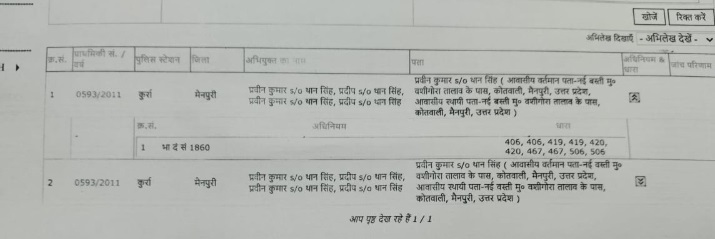 खोजें रिक्त करें
अभिलेख दिखाएँ - अभिलेख देखें -
क्र.सं. प्राथमिकी सं. / वर्ष पुलिस स्टेशन जिला अभियुक्त का नाम पता अधिनियम & धारा जांच परिणाम
1 0593/2011 कुर्रा मैनपुरी प्रवीन कुमार s/o थान सिंह, प्रदीप s/o थान सिंह,
प्रवीन कुमार s/o थान सिंह, प्रदीप s/o थान सिंह
प्रवीन कुमार s/o थान सिंह ( आवासीय वर्तमान पता-नई बस्ती मु०
वशीगोरा तालाव के पास, कोतवाली, मैनपुरी, उत्तर प्रदेश,
आवासीय स्थायी पता-नई बस्ती मु० वशीगोरा तालाव के पास,
कोतवाली, मैनपुरी, उत्तर प्रदेश )
क्र.सं. अधिनियम धारा
1 भा दं सं 1860 406, 406, 419, 419, 420,
420, 467, 467, 506, 506
2 0593/2011 कुर्रा मैनपुरी प्रवीन कुमार s/o थान सिंह, प्रदीप s/o थान सिंह,
प्रवीन कुमार s/o थान सिंह, प्रदीप s/o थान सिंह
प्रवीन कुमार s/o थान सिंह ( आवासीय वर्तमान पता-नई बस्ती मु०
वशीगोरा तालाव के पास, कोतवाली, मैनपुरी, उत्तर प्रदेश,
आवासीय स्थायी पता-नई बस्ती मु० वशीगोरा तालाव के पास,
कोतवाली, मैनपुरी, उत्तर प्रदेश )
आप पृष्ठ देख रहे है 1 / 1